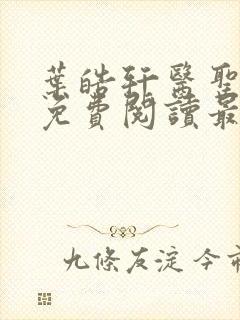 葉皓軒醫聖
免費閱讀最
九條友淀今市